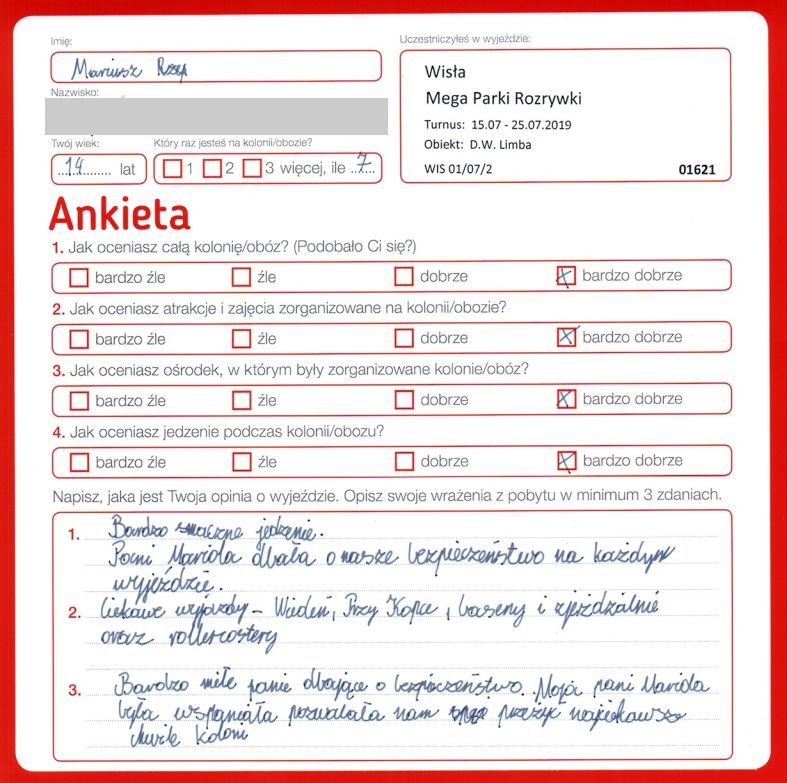 Imię:
Mariusz
Nazwisko:
Twój wiek:
14 lat
Który raz jesteś na kolonii/obozie?
1 2 3 więcej, ile 7
Uczestniczyłeś w wyjeździe:
Wisła
Mega Parki Rozrywki
Turnus: 15.07 - 25.07.2019
Obiekt: D.W. Limba
WIS 01/07/2 01621
Ankieta
1. Jak oceniasz całą kolonię/obóz? (Podobało Ci się?)
bardzo źle źle dobrze bardzo dobrze
2. Jak oceniasz atrakcje i zajęcia zorganizowane na kolonii/obozie?
bardzo źle źle dobrze bardzo dobrze
3. Jak oceniasz ośrodek, w którym były zorganizowane kolonie/obóz?
bardzo źle źle dobrze bardzo dobrze
4. Jak oceniasz jedzenie podczas kolonii/obozu?
bardzo źle źle dobrze bardzo dobrze
Napisz, jaka jest Twoja opinia o wyjeździe. Opisz swoje wrażenia z pobytu w minimum 3 zdaniach.
1. Bardzo smaczne jedzenie.
Pani Mariola dbała o nasze bezpieczeństwo na każdym
wyjeździe.
2. Ciekawe wyjazdy - Wiedeń, Przy Kopce, baseny i zjeżdżalnie
oraz rollercostery
3. Bardzo miłe panie dbające o bezpieczeństwo. Moja pani Mariola
była wspaniała pozwalała nam przeżyć najciekawsze
chwile koloni